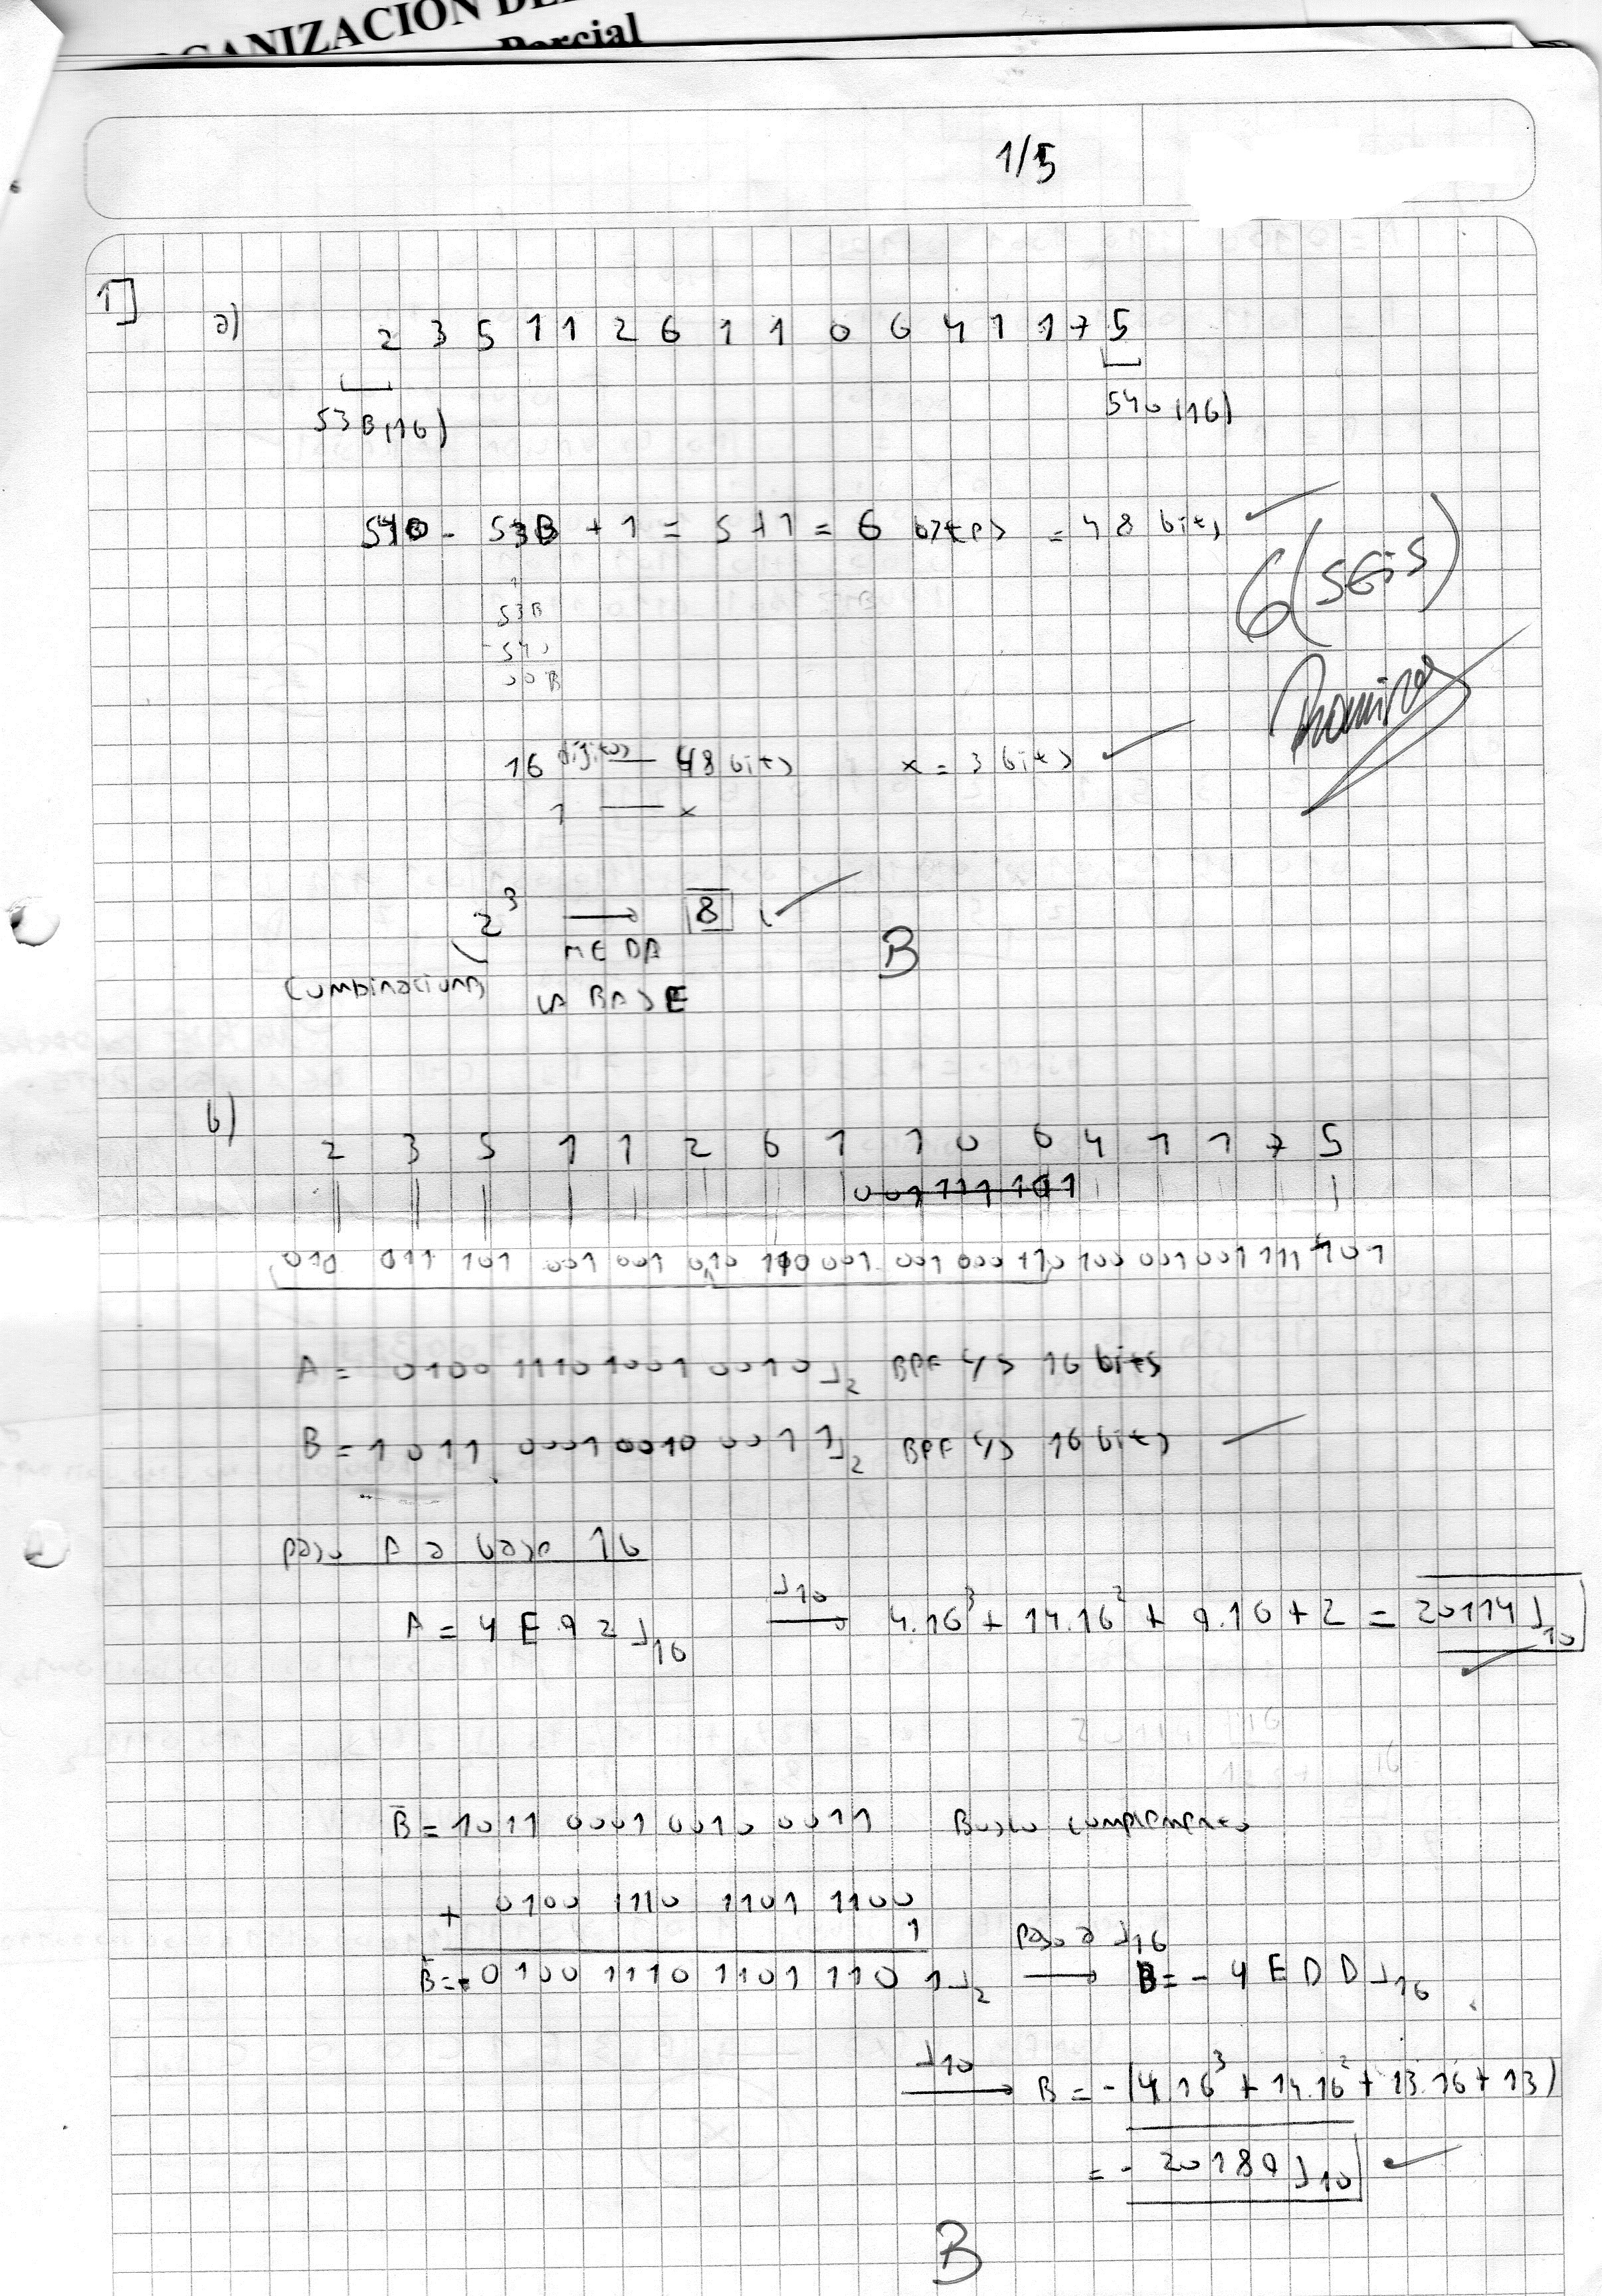 ORGANIZACION DE
Parcial
1/5
1]
a) 2 3 5 1 1 2 6 1 1 0 6 4 1 1 7 5
53B(16) 540(16)
540 - 53B + 1 = 5+1 = 6 bytes = 48 bits
6 (SEIS)
53B
540
00B
16 digitos — 48 bits x = 3 bits
1 — x
2³ → 8
ME DA
LA BASE
combinaciones
B
b) 2 3 5 1 1 2 6 1 1 0 6 4 1 1 7 5
001 111 101
010 011 101 001 001 010 110 001 001 000 110 100 001 001 111 101
A = 0100 1110 1001 0010⌟2 BPF c/s 16 bits
B = 1011 0001 0010 0011⌟2 BPF c/s 16 bits
paso A a base 16
A = 4E92⌟16 ⌟10 → 4.16³ + 14.16² + 9.16 + 2 = 20114⌟10
B̄ = 1011 0001 0010 0011 Busco complemento
+ 0100 1110 1101 1100
1
B̄ = 0100 1110 1101 1101⌟2 paso a ⌟16 → B = - 4EDD⌟16
⌟10 → B = -(4.16³ + 14.16² + 13.16 + 13)
= - 20189⌟10
B